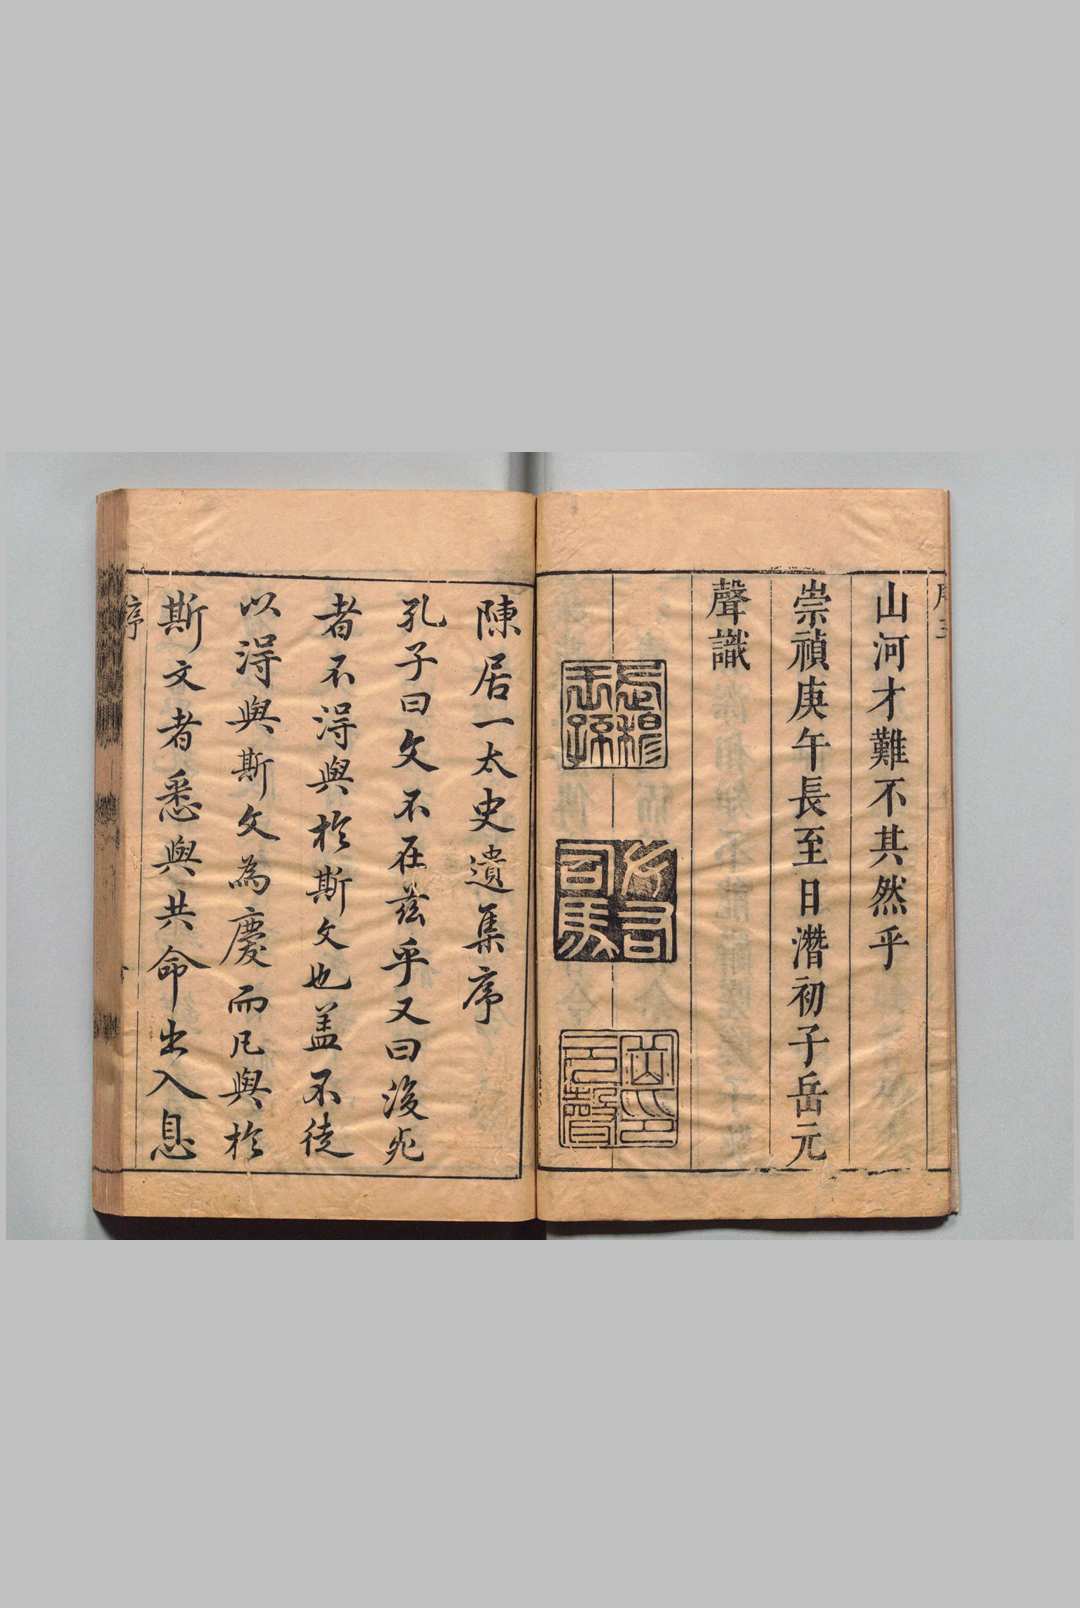 山河才難不其然乎
崇禎庚午長至日潛初子岳元
聲識
陳居一太史遺集序
孔子曰文不在茲乎又曰後死
者不得與於斯文也盖不徒
以得與斯文為慶而凡與於
斯文者悉與共命出入息
序